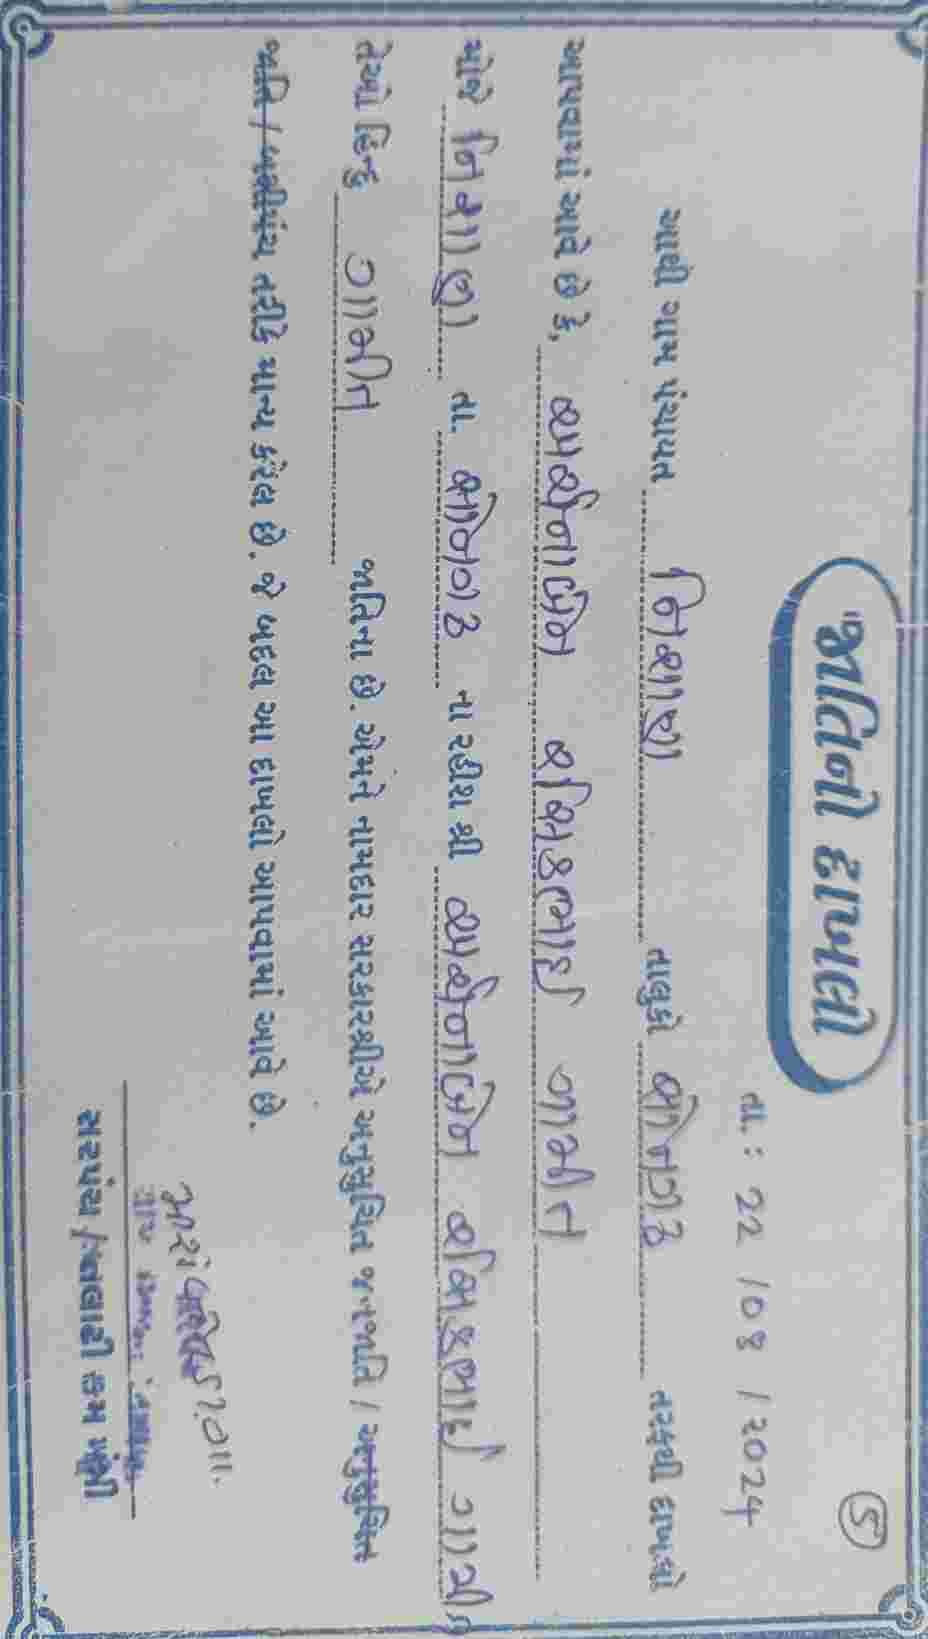 જાતિનો દાખલો
૬
તા. : 22 / 08 / 2024
આથી ગામ પંચાયત નિશાણા તાલુકો સોનગઢ તરફથી દાખલો
આપવામાં આવે છે કે, અર્ચનાબેન રવિણભાઈ ગામીત
મોજે નિશાણા તા. સોનગઢ ના રહીશ શ્રી અર્ચનાબેન ગામીત
તેઓ હિન્દુ ગામીત જાતિના છે. એમને નામદાર સરકારશ્રીએ અનુસુચિત જનજાતિ / અનુસુચિત
જાતિ / બક્ષીપંચ તરીકે માન્ય કરેલ છે. જે બદલ આ દાખલો આપવામાં આવે છે.
સરપંચ / તલાટી કમ મંત્રી